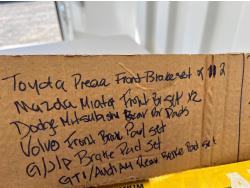 Toyota Front Brake set of 2
Mazda Miata Front Br set x2
Dodge Mitsubishi Rear Br Pads
Volvo Front Brake Pad set
Brake Pad set
GTI/Audi Rear Brake Pad set